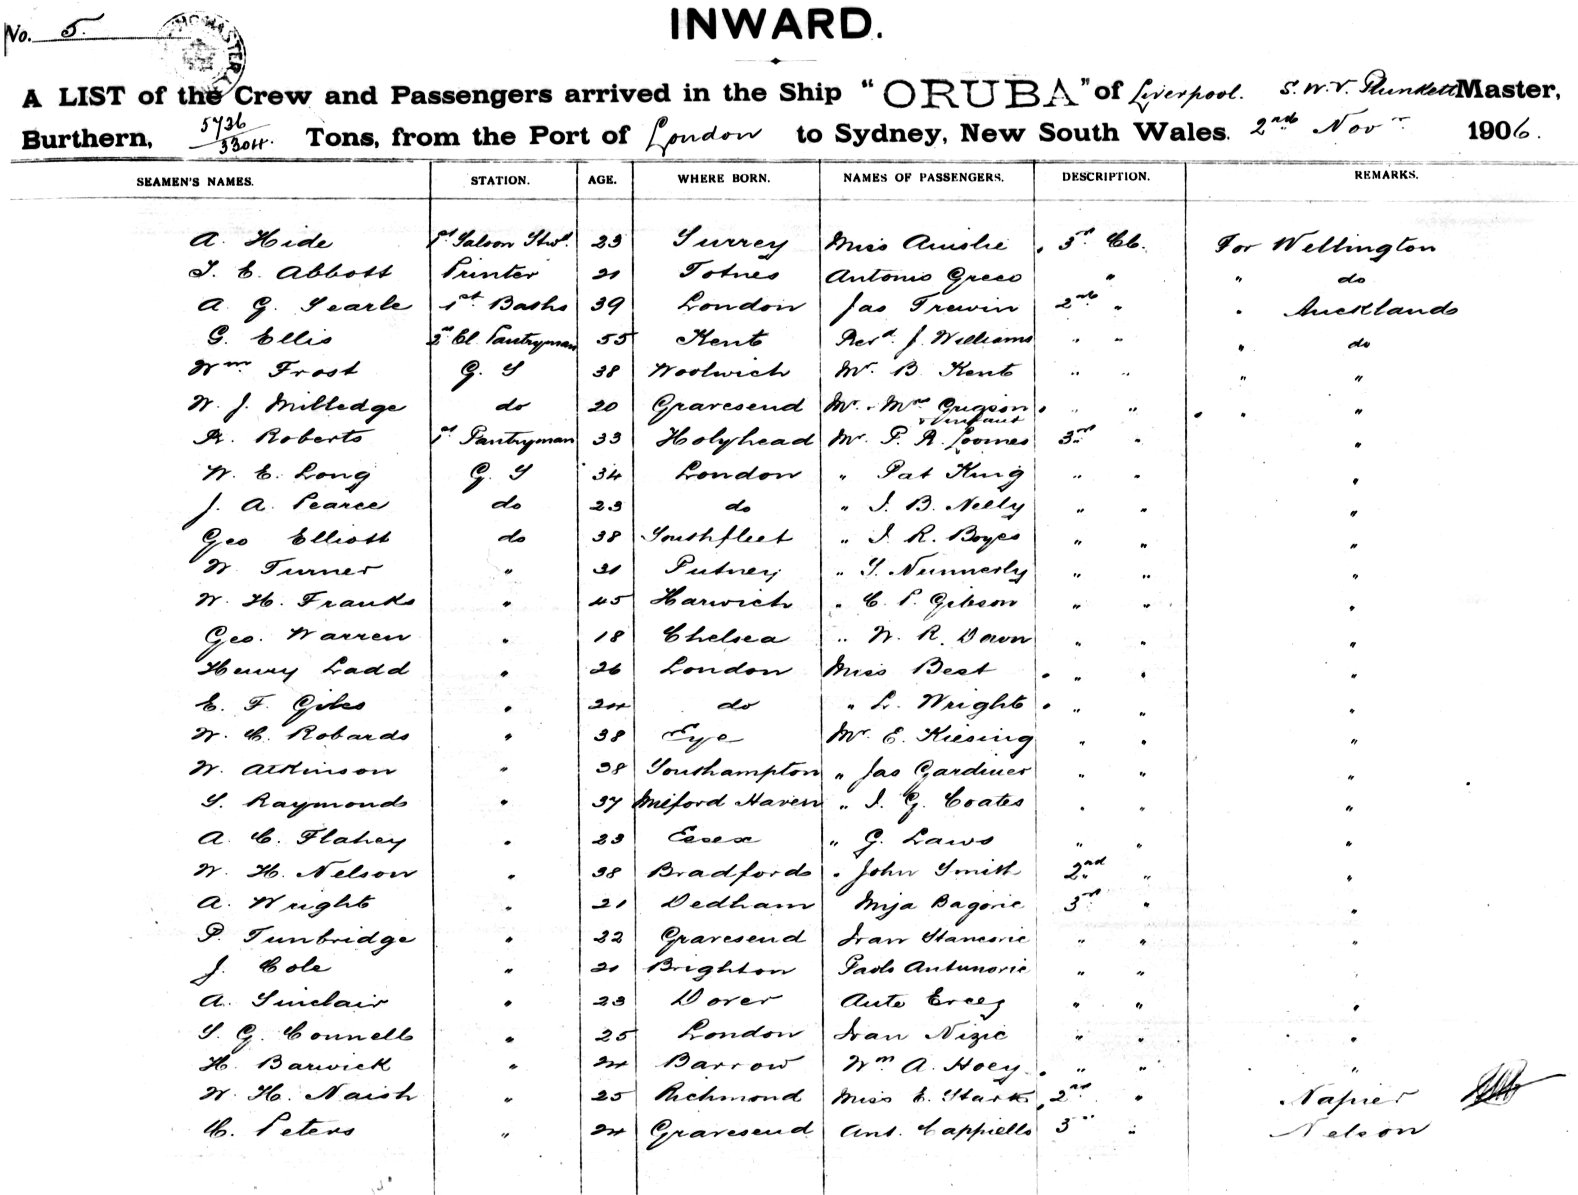 No. 5.
INWARD.
A LIST of the Crew and Passengers arrived in the Ship "ORUBA" of Liverpool. S. W. V. Plunkett Master,
Burthern, 5736/3304 Tons, from the Port of London to Sydney, New South Wales. 2nd Novr 1906.
SEAMEN'S NAMES. STATION. AGE. WHERE BORN. NAMES OF PASSENGERS. DESCRIPTION. REMARKS.
A. Hide 1st Saloon Stwd 23 Surrey Miss Ainslie 3rd Cl. For Wellington
T. E. Abbott Printer 21 Totnes Antonio Greco " " do
A. G. Searle 1st Baths 39 London Jas Trewin 2nd " " Aucklands
G. Ellis 2nd Cl Pantryman 55 Kent Revd. J. Williams " " " do
Wm Frost G. S 38 Woolwich Mr. B. Kent " " " "
W. J. Milledge do 20 Gravesend Mr. & Mrs Grigson " " " "
& Infant
R. Roberts 1st Pantryman 33 Holyhead Mr. P. R. Loomes 3rd " "
W. E. Long G. S 34 London " Pat King " " "
J. A. Pearce do 23 do " J. B. Nelly " " "
Geo Elliott do 38 Southfleet " J. R. Boyes " " "
W. Turner " 31 Putney " S. Nunnerly " " "
W. H. Franks " 45 Harwich " C. P. Gibson " " "
Geo. Warren " 18 Chelsea " W. R. Down " " "
Henry Ladd " 26 London Miss Best " " "
E. F. Giles " 24 do " L. Wright " " "
W. C. Robards " 38 Eye Mr. E. Kiesing " " "
W. Atkinson " 38 Southampton " Jas Gardiner " " "
S. Raymonds " 37 Milford Haven " J. G. Coates " " "
A. C. Flahey " 23 Essex " G. Laws " " "
W. H. Nelson " 38 Bradfords " John Smith 2nd " "
A. Wright " 21 Dedham Mija Bagoric 3rd " "
P. Tunbridge " 22 Gravesend Ivan Stancovic " " "
J. Cole " 21 Brighton Paolo Antunovic " "
A. Sinclair " 23 Dover Ante Erceg " " "
S. G. Connell " 25 London Ivan Nizic " " "
H. Barwick " 24 Barrow Wm A. Hoey " " "
W. H. Naish " 25 Richmond Miss E. Stark 2nd " Napier
C. Peters " 24 Gravesend Ant. Cappiello 3rd " Nelson